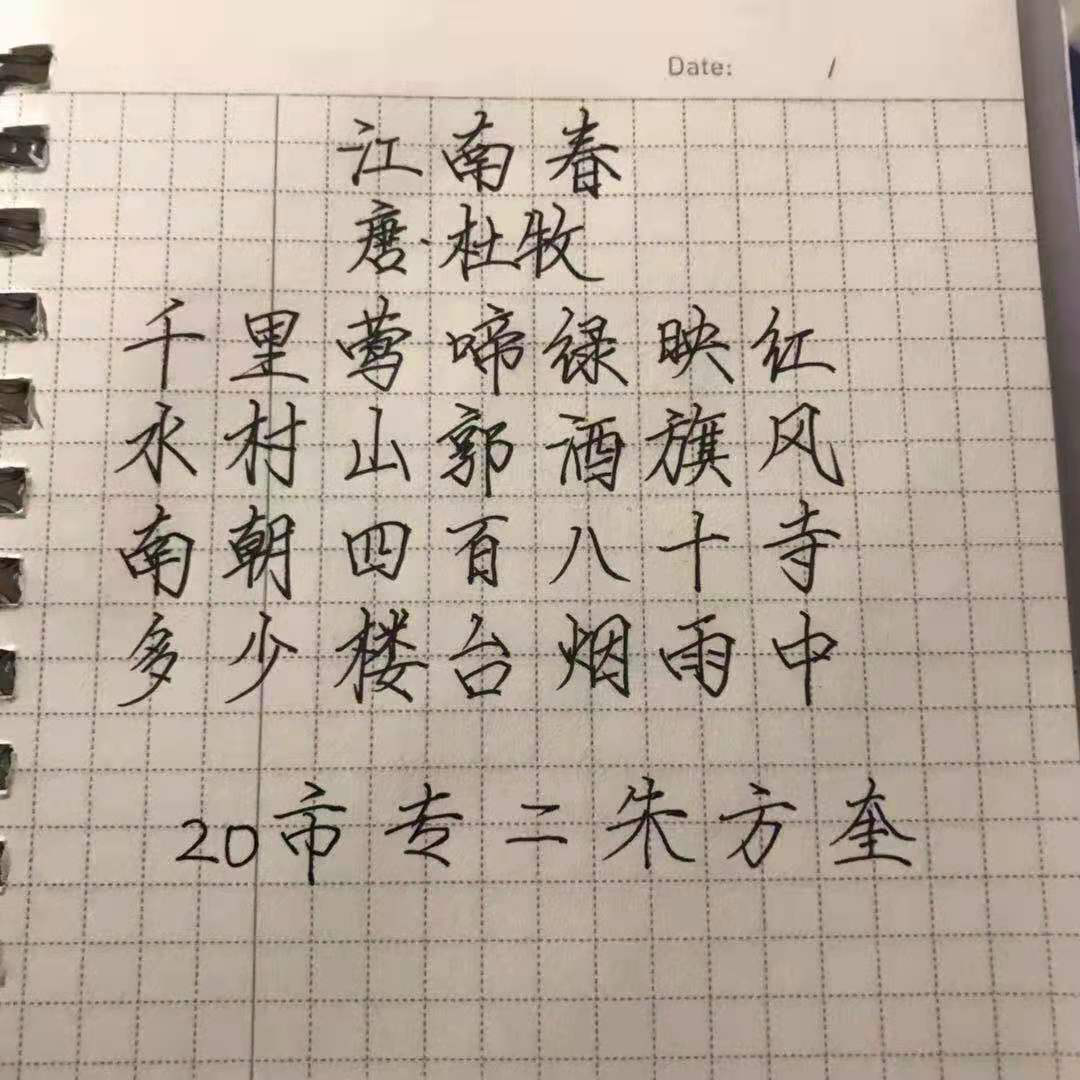 Date: /
江南春
唐·杜牧
千里莺啼绿映红
水村山郭酒旗风
南朝四百八十寺
多少楼台烟雨中
20市专二朱方奎